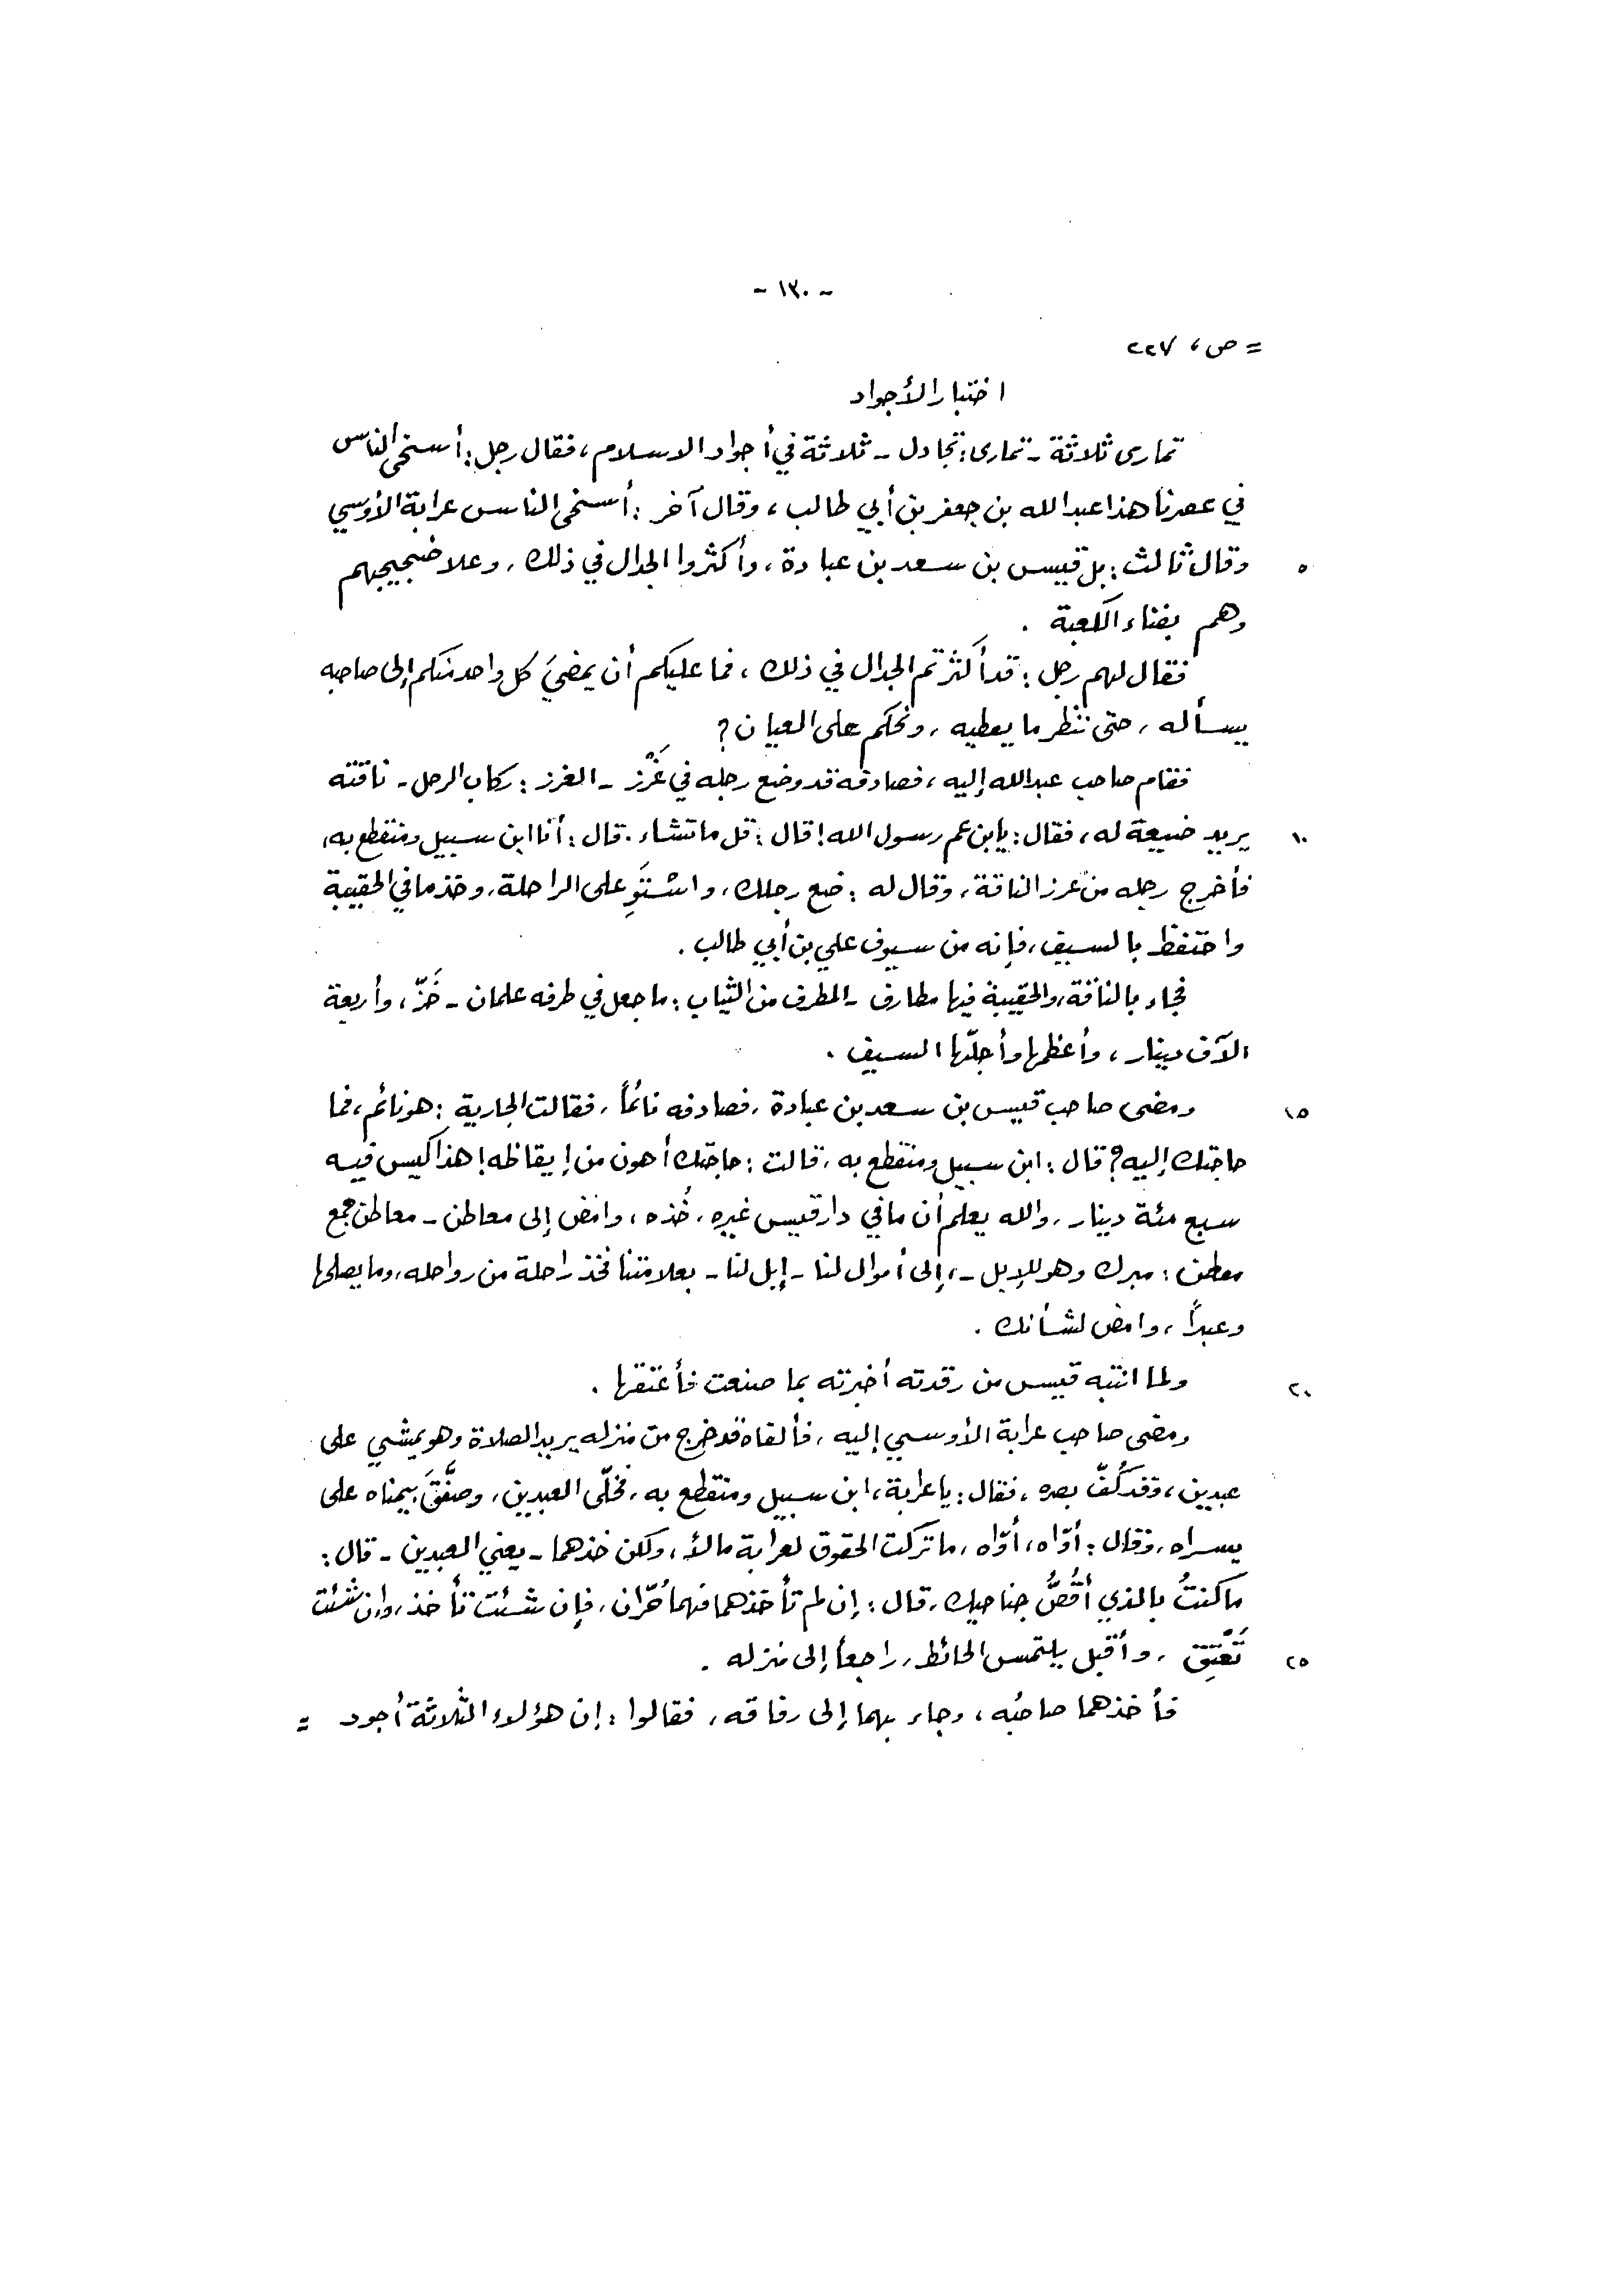 - ١٣٠ -
= ص، ٢٢٧
اختبار الأجواد
تمارى ثلاثة - تمارى: تجادل - ثلاثة في أجواد الاسلام، فقال رجل: أسخى الناس
في عصرنا هذا عبد الله بن جعفر بن أبي طالب، وقال آخر: أسخى الناس عرابة الأوسي
٥ وقال ثالث: بل قيس بن سعد بن عبادة، وأكثروا الجدال في ذلك، وعلا ضجيجهم
وهم بفناء الكعبة.
فقال لهم رجل: قد أكثرتم الجدال في ذلك، فما عليكم أن يمضيَ كل واحد منكم إلى صاحبه
يسأله، حتى ننظر ما يعطيه، ونحكم على العيان؟
فقام صاحب عبد الله إليه، فصادفه قد وضع رجله في غَرْز - الغرز: ركاب الرحل - ناقته
١٠ يريد ضيعة له، فقال: يابن عم رسول الله! قال: قل ما تشاء. قال: أنا ابن سبيل ومنقطع به،
فأخرج رجله من غرز الناقة، وقال له: ضع رجلك، واستَوِ على الراحلة، وخذ ما في الحقيبة
واحتفظ بالسيف، فإنه من سيوف علي بن أبي طالب.
فجاء بالناقة، والحقيبة فيها مطارف - المطرف من الثياب: ما جعل في طرفه علمان - خَزّ، وأربعة
الآف دينار، وأعظمها وأجلّها السيف.
١٥ ومضى صاحب قيس بن سعد بن عبادة، فصادفه نائماً، فقالت الجارية: هو نائم، فما
حاجتك إليه؟ قال: ابن سبيل ومنقطع به، قالت: حاجتك أهون من إيقاظه! هذا كيس فيه
سبع مئة دينار، والله يعلم أن ما في دار قيس غيره، خُذه، وامض إلى معاطن - معاطن جمع
معطن: مبرك وهو للإبل -، إلى أموال لنا - إبل لنا - بعلامتنا فخذ راحلة من رواحله، وما يصلحها
وعبداً، وامض لشأنك.
٢٠ ولما انتبه قيس من رقدته أخبرته بما صنعت فأعتقها.
ومضى صاحب عرابة الأوسي إليه، فألفاه قد خرج من منزله يريد الصلاة وهو يمشي على
عبدين، وقد كُفّ بصره، فقال: يا عرابة، ابن سبيل ومنقطع به، فخلّى العبدين، وصفَّقَ بيمناه على
يسراه، وقال: أوّاه، أوّاه، ما تركت الحقوق لعرابة مالاً، ولكن خذهما - يعني العبدين - قال:
ما كنتُ بالذي أقُصُّ جناحيك، قال: إن لم تأخذهما فهما حُرّان، فإن شئت تأخذ، وإن شئت
٢٥ تَعْتِق، وأقبل يلتمس الحائط، راجعاً إلى منزله.
فأخذهما صاحبُه، وجاء بهما إلى رفاقه، فقالوا: إن هؤلاء الثلاثة أجود =